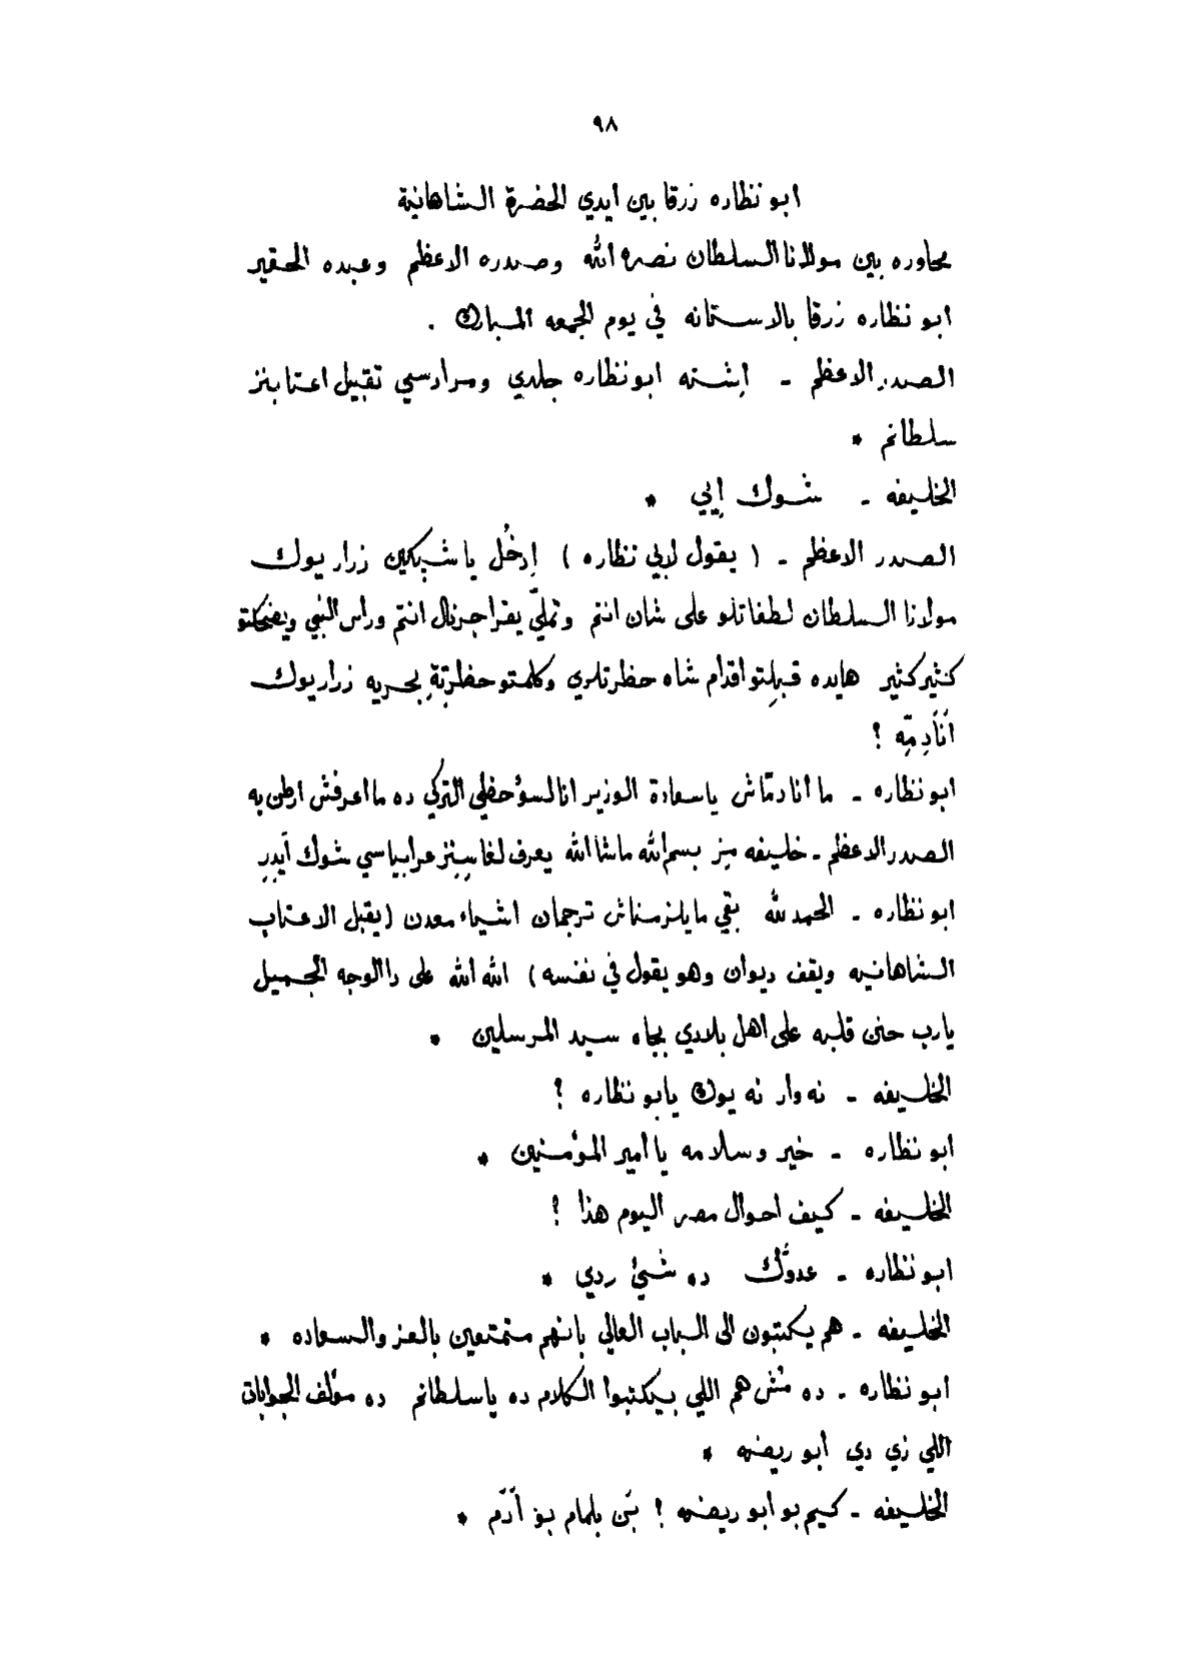 ٩٨
ابو نظاره زرقا بين ايدي الحضرة الشاهانية
محاوره بين مولانا السلطان نصره الله وصدره الاعظم وعبده الحقير
ابو نظاره زرقا بالاستانه في يوم الجمعه المبارك .
الصدر الاعظم - اِشته ابو نظاره جلدي ومرادسي تقبيل اعتابنز
سلطانم *
الخليفه - شوك إيي *
الصدر الاعظم - ( يقول لابي نظاره ) اِدخُل يا شبكين زرار يوك
مولانا السلطان لطفاتلو على شان انتم وتملّي يقرا جرنال انتم وراس النبي ويضحكتو
كثير كثير هايده قبِلتو اقدام شاه حظرتلري وكلمتو حظرتِةِ بحريه زرار يوك
اَنَاَدِمِّه ؟
ابو نظاره - ما أنادمّاش يا سعادة الوزير انا لسؤ حظي التركي ده ما اعرفش ارطن به
الصدر الاعظم - خليفه مِز بسم الله ماشا الله يعرف لغاسِنِز عرابياسي شوك اَيدِرِ
ابو نظاره - الحمد لله بقي ما يلزمناش ترجمان اشياء معدن ( يقبل الاعتاب
الشاهانيه ويقف ديوان وهو يقول في نفسه ) الله الله على دا الوجه الجميل
يارب حنن قلبه على اهل بلادي بجاه سيد المرسلين *
الخليفه - نه وار نه يوك يابو نظاره ؟
ابو نظاره - خير وسلامه يا أمير المؤمنين *
الخليفه - كيف احوال مصر اليوم هذا ؟
ابو نظاره - عدوُّك ده شيئ ردي *
الخليفه - هم يكتبون الى الباب العالي بانهم متمتعين بالعز والسعاده *
ابو نظاره - ده مُش هم اللي بيكتبوا الكلام ده يا سلطانم ده مؤلف الجوابات
اللي زي دي أبو ريضه *
الخليفه - كيم بو ابو ريضه ؟ بَن بلمام بو اَدَم *